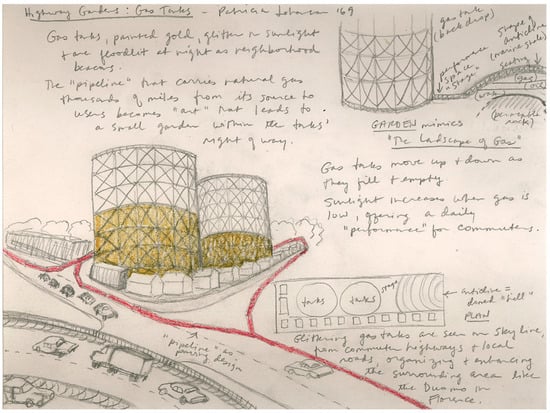 Highway Gardens: Gas Tanks - Patricia Johanson '69
Gas tanks, painted gold, glitter in sunlight
+ are floodlit at night as neighborhood
beacons.
The "pipeline" that carries natural gas
thousands of miles from its source to
users becomes "art" that leads to
a small garden within the tanks'
right of way.
gas tank
(backdrop)
performance
space
"stage"
shape of
anticline
(marine shale)
seating
gas
(permeable
rock)
GARDEN mimics
"The Landscape of Gas"
Gas tanks move up + down as
they fill + empty
Sunlight increases when gas is
low, offering a daily
"performance" for commuters.
tanks
tanks
stage
anticline =
domed "hill"
PLAN
"pipeline" as
paving design
Glittering gas tanks are seen on skyline,
from commuter highways + local
roads, organizing + enhancing
the surrounding area like
the Duomo in
Florence.